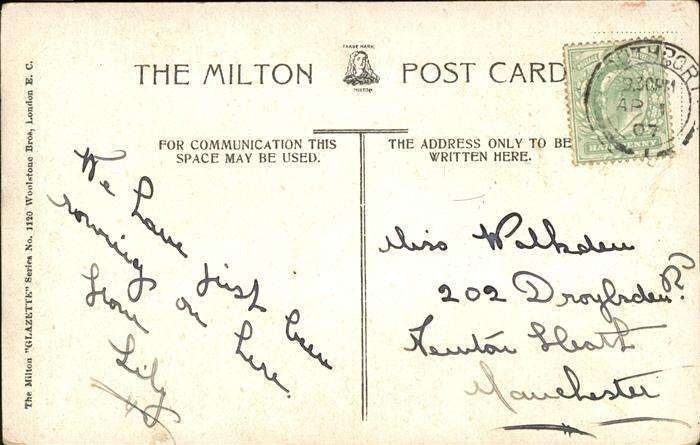 THE MILTON
TRADE MARK
MILTON
POST CARD
SOUTHPORT
8.30PM
AP
07
HALFPENNY
FOR COMMUNICATION THIS
SPACE MAY BE USED.
THE ADDRESS ONLY TO BE
WRITTEN HERE.
We have just been
rowing on here.
from
Lily
Miss Walkden
202 Droylsden Rd
Newton Heath
Manchester
The Milton "GLAZETTE" Series No. 1120 Woolstone Bros, London E. C.